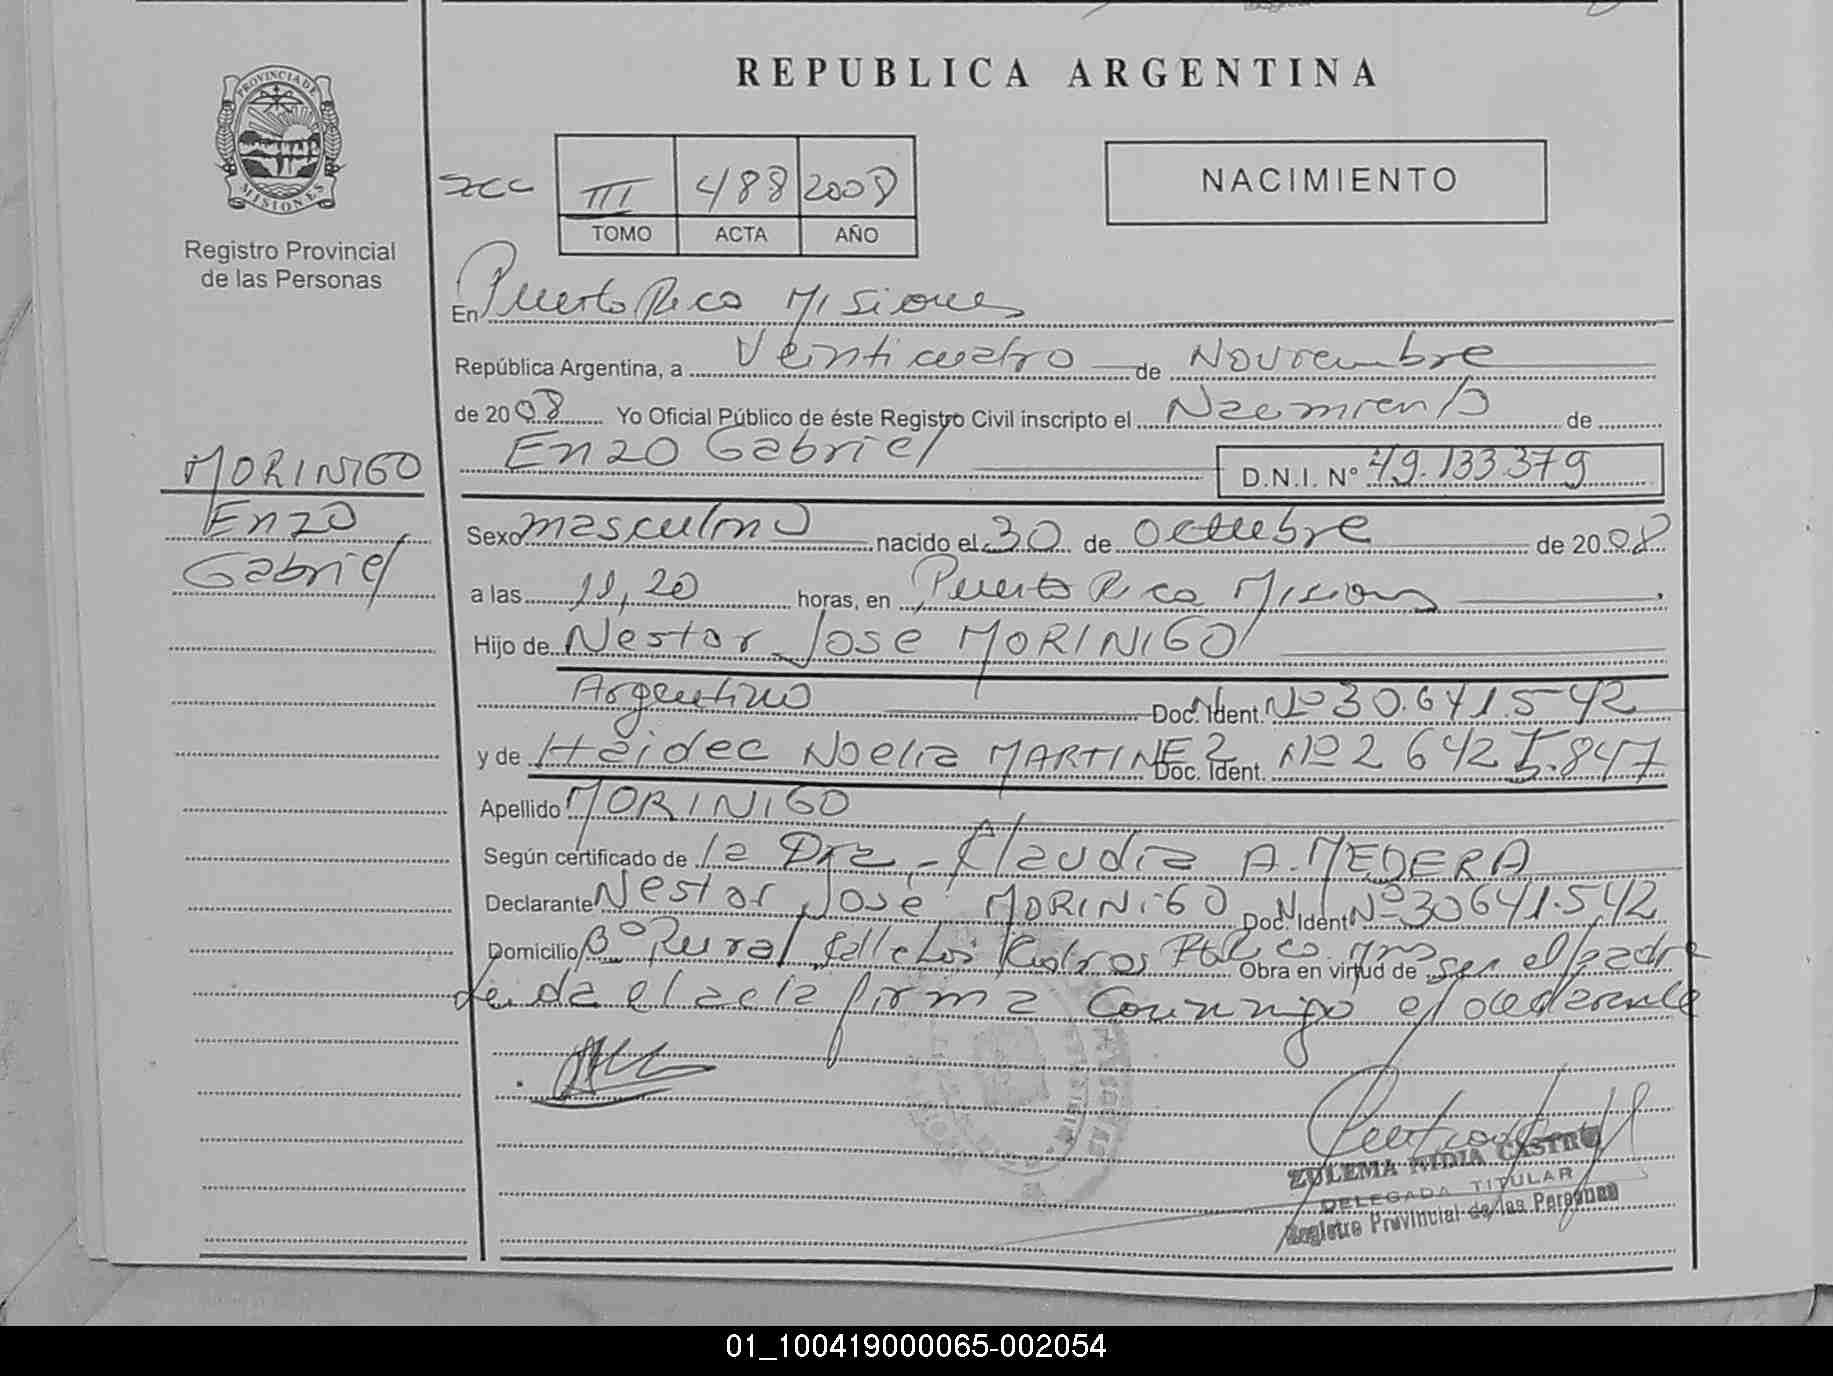 REPUBLICA ARGENTINA
PROVINCIA DE
MISIONES
Registro Provincial
de las Personas
III 488 2008
TOMO ACTA AÑO
NACIMIENTO
En Puerto Rico Misiones
República Argentina, a Veinticuatro de Noviembre
de 2008 Yo Oficial Público de éste Registro Civil inscripto el Nacimiento de
Enzo Gabriel D.N.I. Nº 49.133.379
MORINIGO
Enzo
Gabriel
Sexo masculino nacido el 30 de octubre de 2008
a las 11,20 horas, en Puerto Rico Misiones
Hijo de Nestor José MORINIGO
Argentino Doc. Ident. Nº 30.641.542
y de Haidee Noelia MARTINEZ Doc. Ident. Nº 26425.847
Apellido MORINIGO
Según certificado de la Dra. Claudia A. MEDERA
Declarante Nestor José MORINIGO Doc. Ident Nº 30641.542
Domicilio Bº Rural Calle Los Pto Rico Mnes Obra en virtud de ser el padre
leida el acta firma conmigo el declarante
ZULEMA NIDIA CASTRO
DELEGADA TITULAR
Registro Provincial de las Personas
01_100419000065-002054